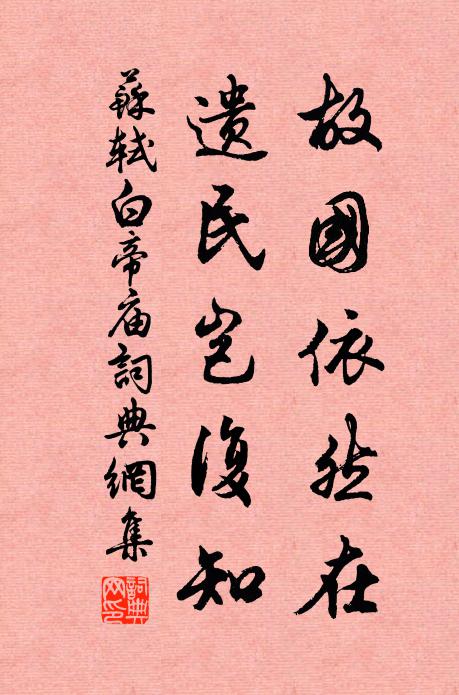 故國依然在
遺民豈復知
蘇軾白帝庙詞典網集
詞典網印